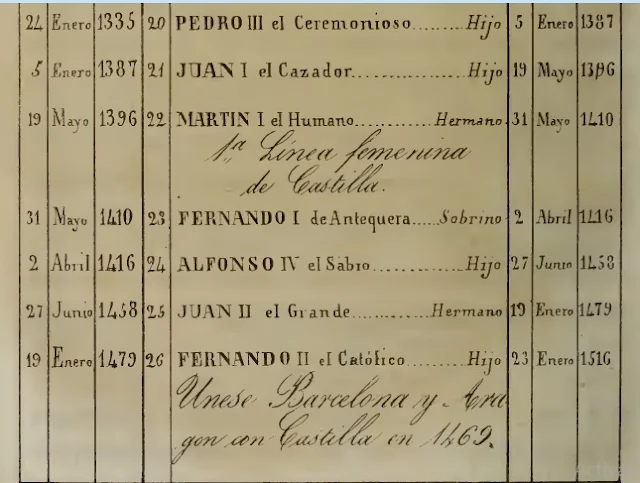 24 Enero 1335 20 PEDRO III el Ceremonioso........Hijo 5 Enero 1387
5 Enero 1387 21 JUAN I el Cazador..............Hijo 19 Mayo 1396
19 Mayo 1396 22 MARTIN I el Humano............Hermano. 31 Mayo 1410
1ª Línea femenina
de Castilla.
31 Mayo 1410 23 FERNANDO I de Antequera.....Sobrino 2 Abril 1416
2 Abril 1416 24 ALFONSO IV el Sabio............Hijo 27 Junio 1458
27 Junio 1458 25 JUAN II el Grande............Hermano 19 Enero 1479
19 Enero 1479 26 FERNANDO II el Católico........Hijo 23 Enero 1516
Unese Barcelona y Ara
gon con Castilla en 1469.